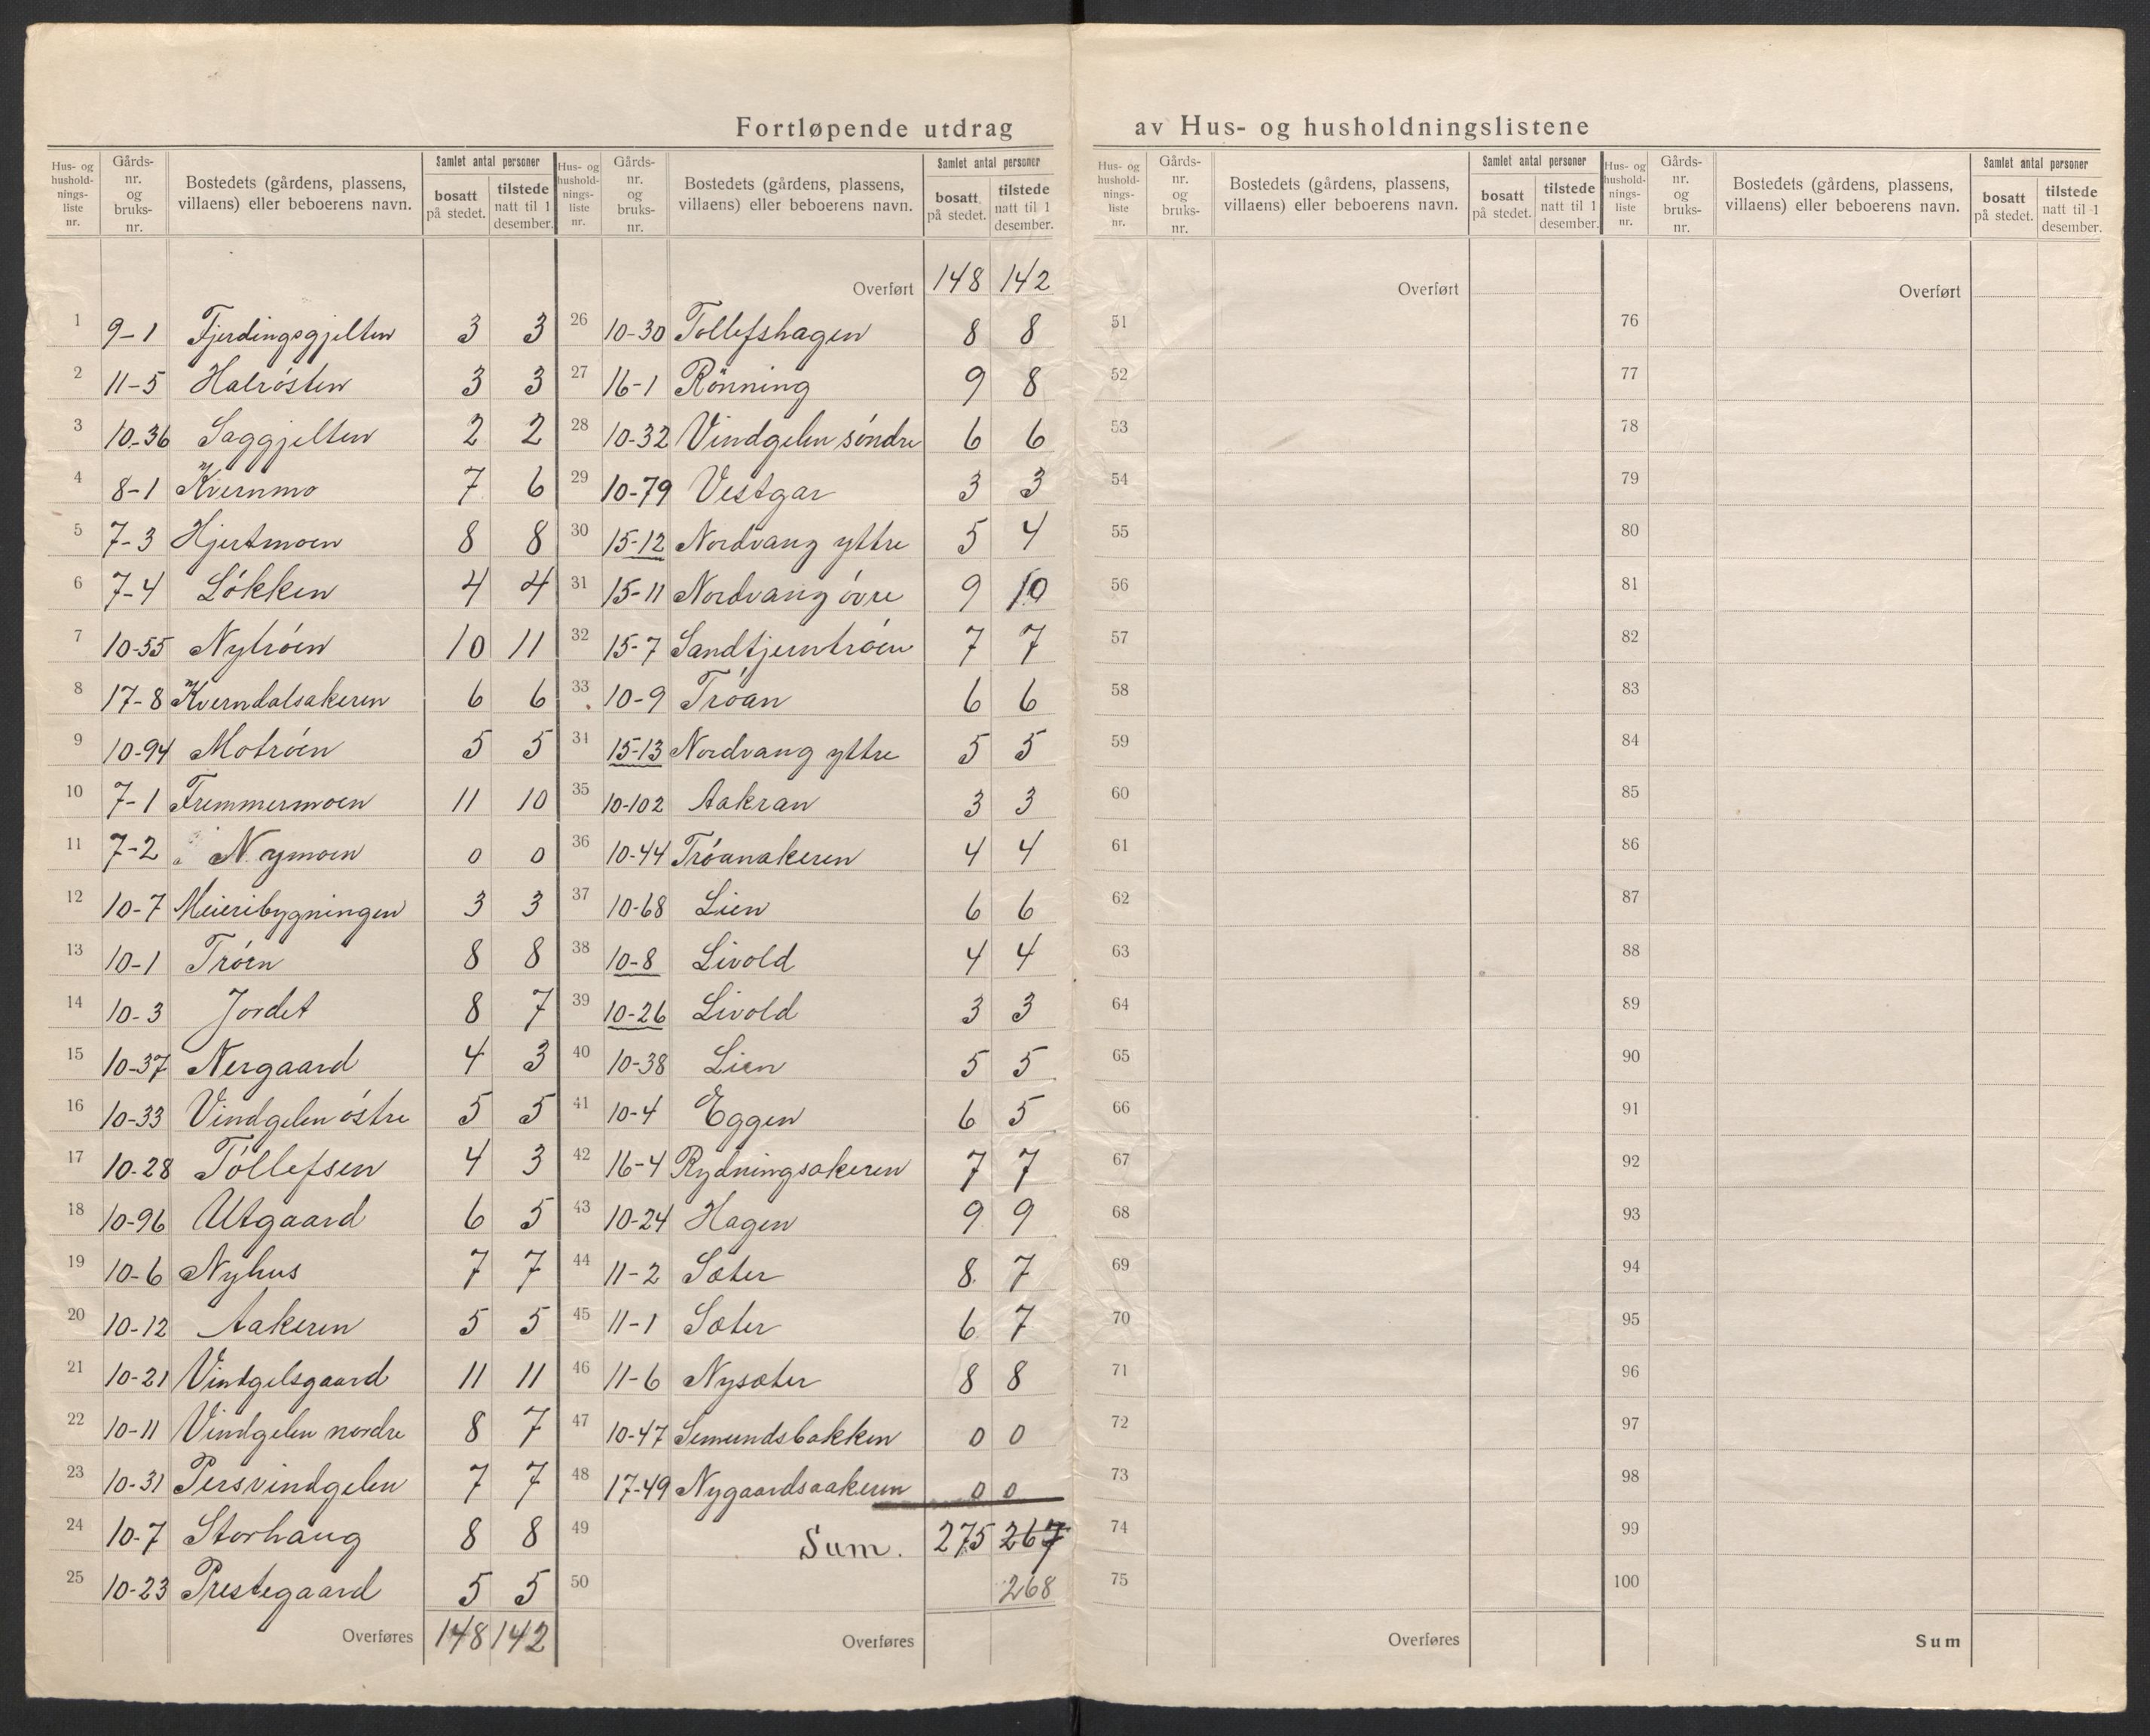 Fortløpende utdrag av Hus- og husholdningslistene
Hus- og husholdnings-liste nr. | Gårds-nr. og bruks-nr. | Bostedets (gårdens, plassens, villaens) eller beboerens navn. | Samlet antal personer | bosatt på stedet. | tilstede natt til 1 desember.
1 9-1 Fjerdingsgjelten 3 3
2 11-5 Halrösten 3 3
3 10-36 Saggjelten 2 2
4 8-1 Kvernmo 7 6
5 7-3 Hjertmoen 8 8
6 7-4 Lökken 4 4
7 10-55 Nytröen 10 11
8 17-8 Kverndalsakeren 6 6
9 10-94 Motröen 5 5
10 7-1 Fremmermoen 11 10
11 7-2 Nymoen 0 0
12 10-7 Meieribygningen 3 3
13 10-1 Tröen 8 8
14 10-3 Jordet 8 7
15 10-37 Nergaard 4 3
16 10-33 Vindgelen östre 5 5
17 10-28 Tollefsen 4 3
18 10-96 Utgaard 6 5
19 10-6 Nyhus 7 7
20 10-12 Aakeren 5 5
21 10-21 Vintgelsgaard 11 11
22 10-11 Vindgelen nordre 8 7
23 10-31 Persvindgelen 7 7
24 10-7 Storhaug 8 8
25 10-23 Prestegaard 5 5
Overføres 148 142
Hus- og husholdnings-liste nr. | Gårds-nr. og bruks-nr. | Bostedets (gårdens, plassens, villaens) eller beboerens navn. | Samlet antal personer | bosatt på stedet. | tilstede natt til 1 desember.
Overført 148 142
26 10-30 Tollefshagen 8 8
27 16-1 Rönning 9 8
28 10-32 Vindgelen söndre 6 6
29 10-79 Vestgar 3 3
30 15-12 Nordvang yttre 5 4
31 15-11 Nordvang övre 9 10
32 15-7 Sandtjerntröen 7 7
33 10-9 Tröan 6 6
34 15-13 Nordvang yttre 5 5
35 10-102 Aakran 3 3
36 10-44 Tröanakeren 4 4
37 10-68 Lien 6 6
38 10-8 Livold 4 4
39 10-26 Livold 3 3
40 10-38 Lien 5 5
41 10-4 Eggen 6 5
42 16-4 Rydningsakeren 7 7
43 10-24 Hagen 9 9
44 11-2 Sæter 8 7
45 11-1 Sæter 6 7
46 11-6 Nysæter 8 8
47 10-47 Semundsbakken 0 0
48 17-49 Nygaardsaakeren 0 0
49 Sum. 275 267
50 268
Overføres
Hus- og husholdnings-liste nr. | Gårds-nr. og bruks-nr. | Bostedets (gårdens, plassens, villaens) eller beboerens navn. | Samlet antal personer | bosatt på stedet. | tilstede natt til 1 desember.
Overført
51
52
53
54
55
56
57
58
59
60
61
62
63
64
65
66
67
68
69
70
71
72
73
74
75
Overføres
Hus- og husholdnings-liste nr. | Gårds-nr. og bruks-nr. | Bostedets (gårdens, plassens, villaens) eller beboerens navn. | Samlet antal personer | bosatt på stedet. | tilstede natt til 1 desember.
Overført
76
77
78
79
80
81
82
83
84
85
86
87
88
89
90
91
92
93
94
95
96
97
98
99
100
Sum